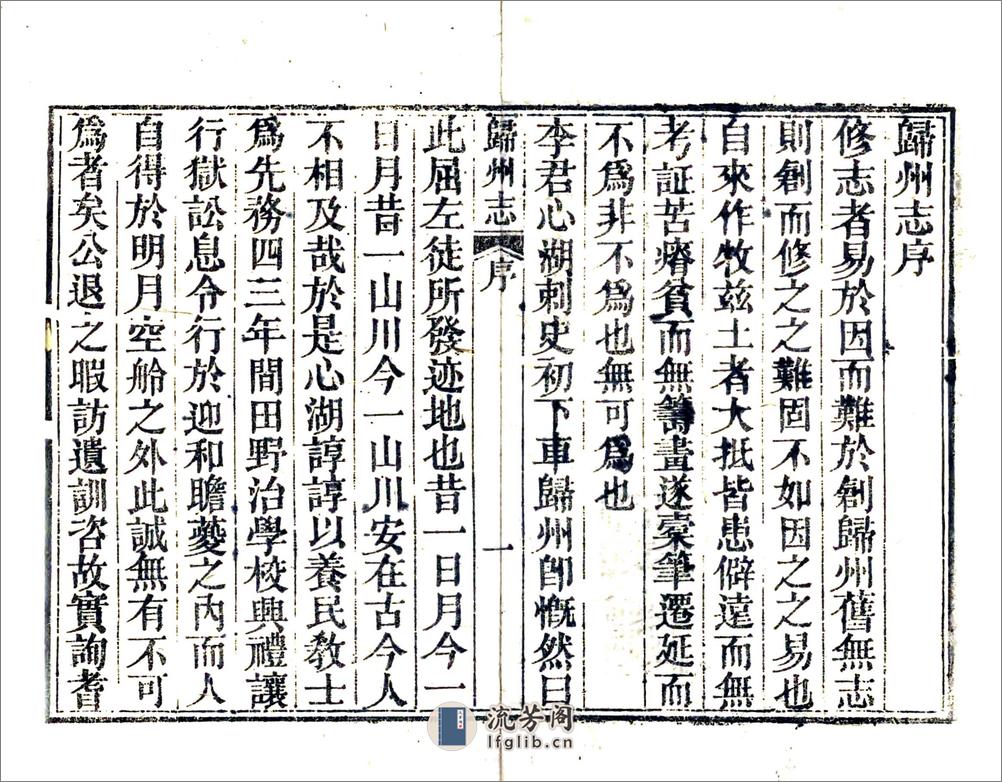 歸州志序
修志者易於因而難於創歸州舊無志
則創而修之之難固不如因之之易也
自來作牧茲土者大抵皆患僻遠而無
考証苦瘠貧而無籌畫遂橐筆遷延而
不爲非不爲也無可爲也
李君心湖刺史初下車歸州卽慨然曰
歸州志 序 一
此屈左徒所發迹地也昔一日月今一
日月昔一山川今一山川安在古今人
不相及哉於是心湖諄諄以養民教士
爲先務四三年間田野治學校興禮讓
行獄訟息令行於迎和瞻夔之內而人
自得於明月空舲之外此誠無有不可
爲者矣公退之暇訪遺訓咨故實詢耆
流芳阁
lfglib.cn